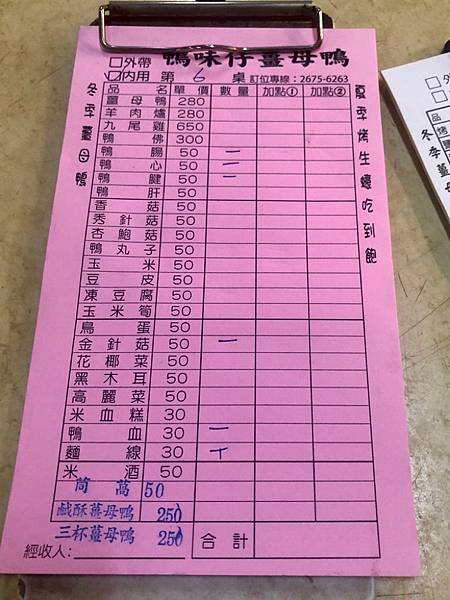 鴨味仔薑母鴨
□外帶
□內用 第 6 桌 訂位專線：2675-6263
冬季薑母鴨
夏季烤生蠔吃到飽
品名 單價 數量 加點① 加點②
薑母鴨 280
羊肉爐 280
九尾雞 650
鴨佛 300
鴨腸 50 一
鴨心 50 一
鴨腱 50 一
鴨肝 50
香菇 50
秀針菇 50
杏鮑菇 50
鴨丸子 50
玉米 50
豆皮 50
凍豆腐 50
玉米筍 50
鳥蛋 50
金針菇 50 一
花椰菜 50
黑木耳 50
高麗菜 50
米血糕 30
鴨血 30 一
麵線 30
米酒 50
茼萬 50
鹹酥薑母鴨 250
三杯薑母鴨 250
合計
經收人：